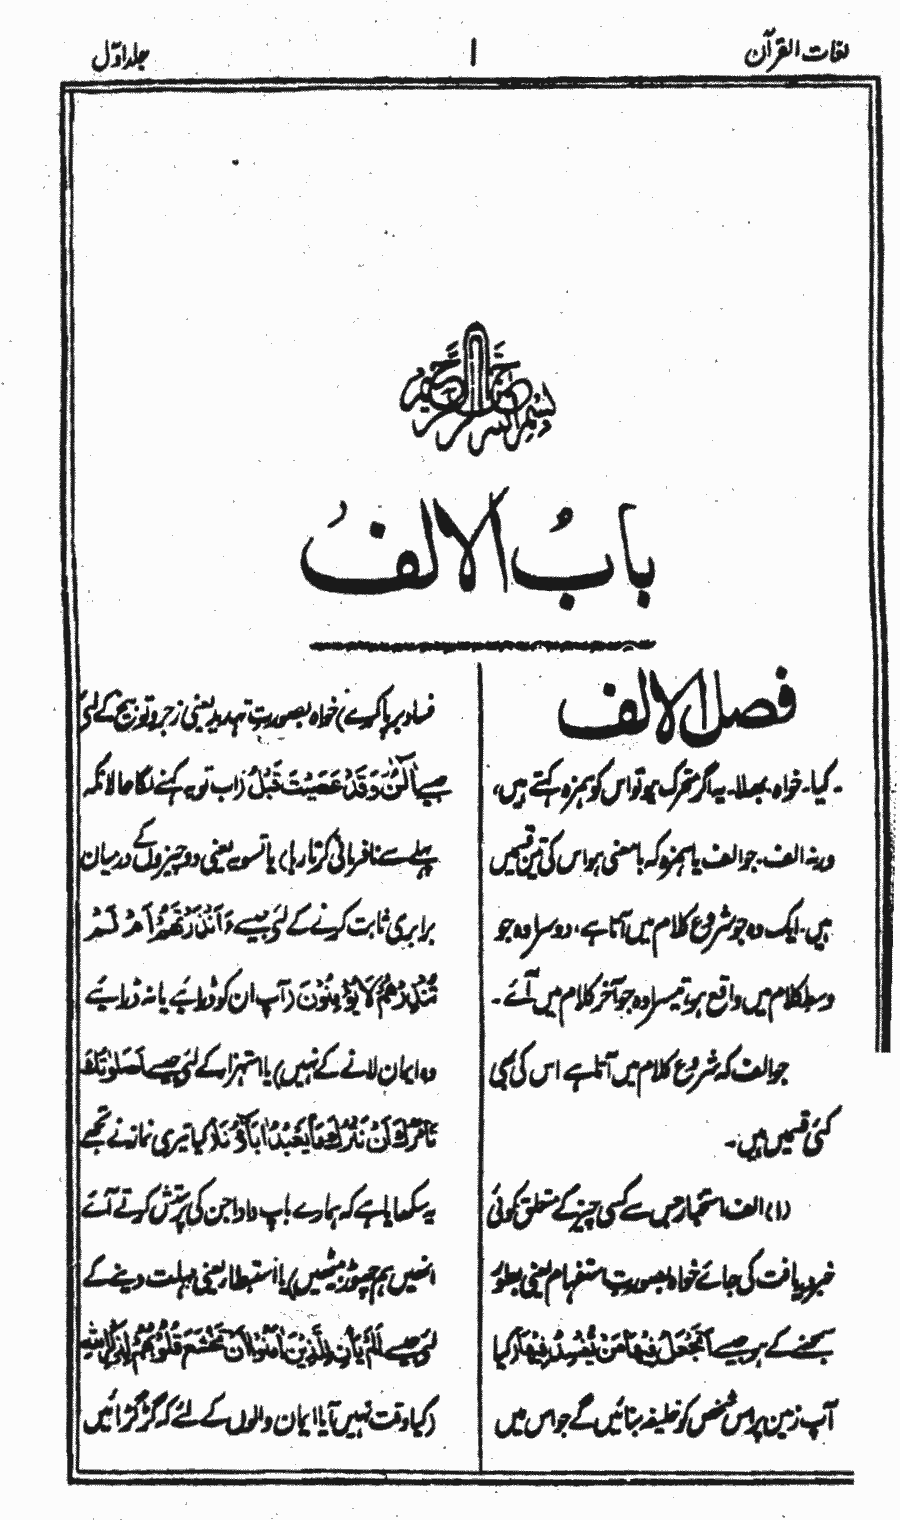 لغات القرآن
۱
جلد اوّل
بسم اللہ الرحمن الرحیم
بابُ الالفُ
فصل الالف
۔ کیا۔ خواہ۔ بھلا۔ یہ اگر متحرک ہو تو اس کو ہمزہ کہتے ہیں،
ورنہ الف۔ جو الف یا ہمزہ کہ بامعنی ہو اس کی تین قسمیں
ہیں۔ ایک وہ جو شروع کلام میں آتا ہے، دوسرا وہ جو
وسط کلام میں واقع ہو، تیسرا وہ جو آخر کلام میں آئے۔
جو الف کہ شروع کلام میں آتا ہے اس کی بھی
کئی قسمیں ہیں۔
(۱) الف استخبار جس سے کسی چیز کے متعلق کوئی
خبر دریافت کی جائے خواہ بصورتِ استفہام یعنی بطور
سمجھنے کے ہو جیسے أَتَجْعَلُ فِيْهَا مَنْ يُّفْسِدُ فِيْهَا (کیا
آپ زمین پر اس شخص کو خلیفہ بنائیں گے جو اس میں
فساد برپا کرے) خواہ بصورتِ تہدید یعنی زجر و توبیخ کے لئے
جیسے آلْئٰنَ وَقَدْ عَصَيْتَ قَبْلُ (اب تو یہ کہنے لگا حالانکہ
پہلے سے نافرمانی کرتا رہا) یا تسویہ یعنی دو چیزوں کے درمیان
برابری ثابت کرنے کے لئے جیسے ءَاَنْذَرْتَهُمْ اَمْ لَمْ
تُنْذِرْهُمْ لَا يُؤْمِنُوْنَ (آپ ان کو ڈرائیے یا نہ ڈرائیے
وہ ایمان لانے کے نہیں) یا استہزا کے لئے جیسے اَصَلٰوتُكَ
تَأْمُرُكَ اَنْ نَتْرُكَ مَا يَعْبُدُ اٰبَاؤُنَا (کیا تیری نماز نے تجھے
یہ سکھایا ہے کہ ہمارے باپ دادا جن کی پرستش کرتے آئے
انھیں ہم چھوڑ بیٹھیں) یا استبطاء یعنی مہلت دینے کے
لئے جیسے اَلَمْ يَأْنِ لِلَّذِيْنَ اٰمَنُوْا اَنْ تَخْشَعَ قُلُوْبُهُمْ لِذِكْرِ اللّٰهِ
(کیا وقت نہیں آیا ایمان والوں کے لئے کہ گڑگڑائیں